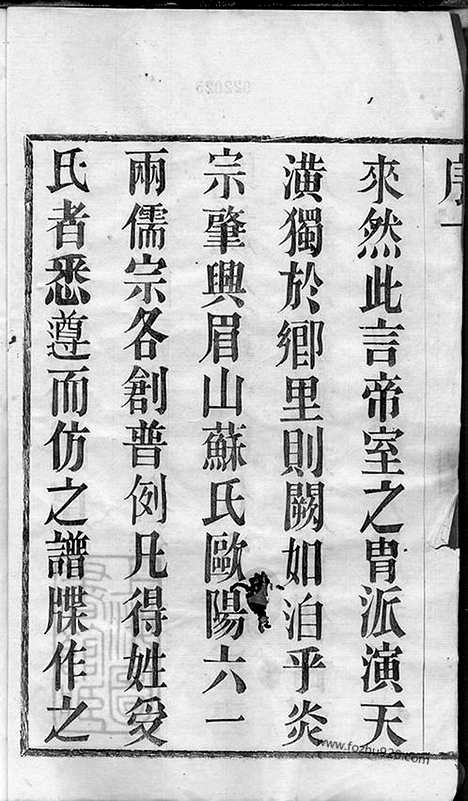 序一
來然此言帝室之胄派演天
潢獨於鄉里則闕如洎乎炎
宗肇興眉山蘇氏歐陽六一
兩儒宗各創普例凡得姓受
氏者悉遵而仿之譜牒作之
www.fozhu920.com